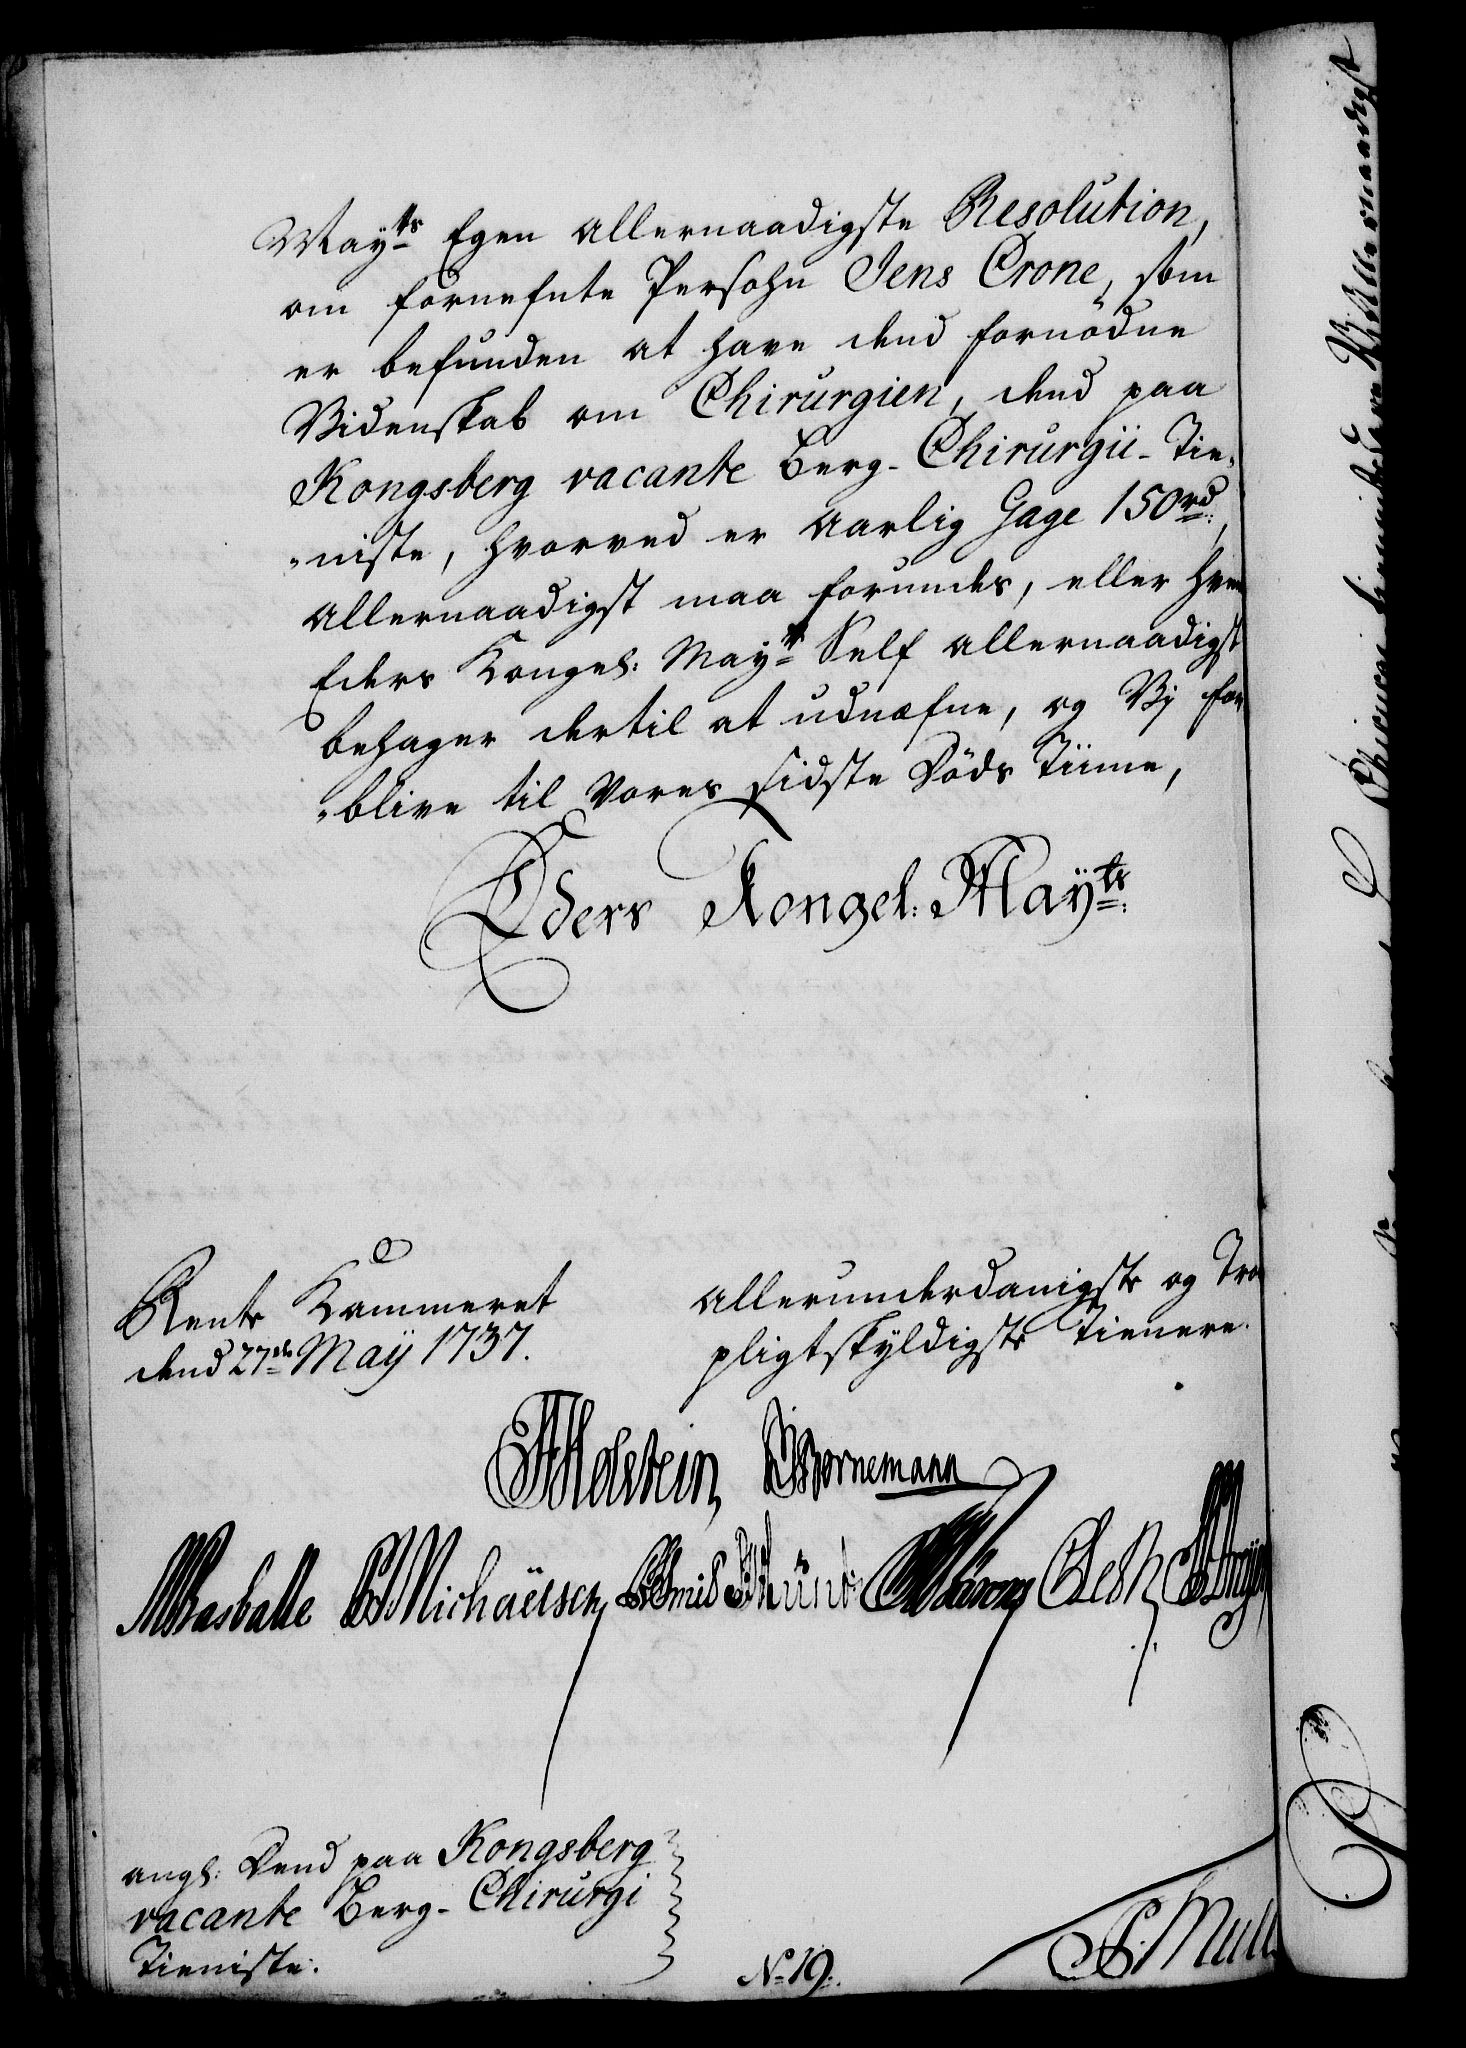 May<sup>ts</sup> Egen allernaadigste Resolution,
om fornefnte Persohn Jens Crone, som
er befunden at have dend fornödne
Videnskab om Chirurgien, dend paa
Kongsberg vacante Berg-Chirurgii-Tie-
niste, hvorved er aarlig Gage 150 rd:,
allernaadigst maa forundes, eller hvem
Eders Kongel: May<sup>tt</sup> Self allernaadigst
behager dertil at udnæfne, og Vi for-
blive til Vores sidste Döds Tiime,
Eders Kongel: Mayts:
Rente Kammeret
dend 27de May 1737.
allerunderdanigste og Tro
pligtskyldigste Tienere.
Holstein Bornemann
Rasballe Michaelsen
angl: Dend paa Kongsberg
vacante Berg-Chirurgi
Tieniste.
No 19.